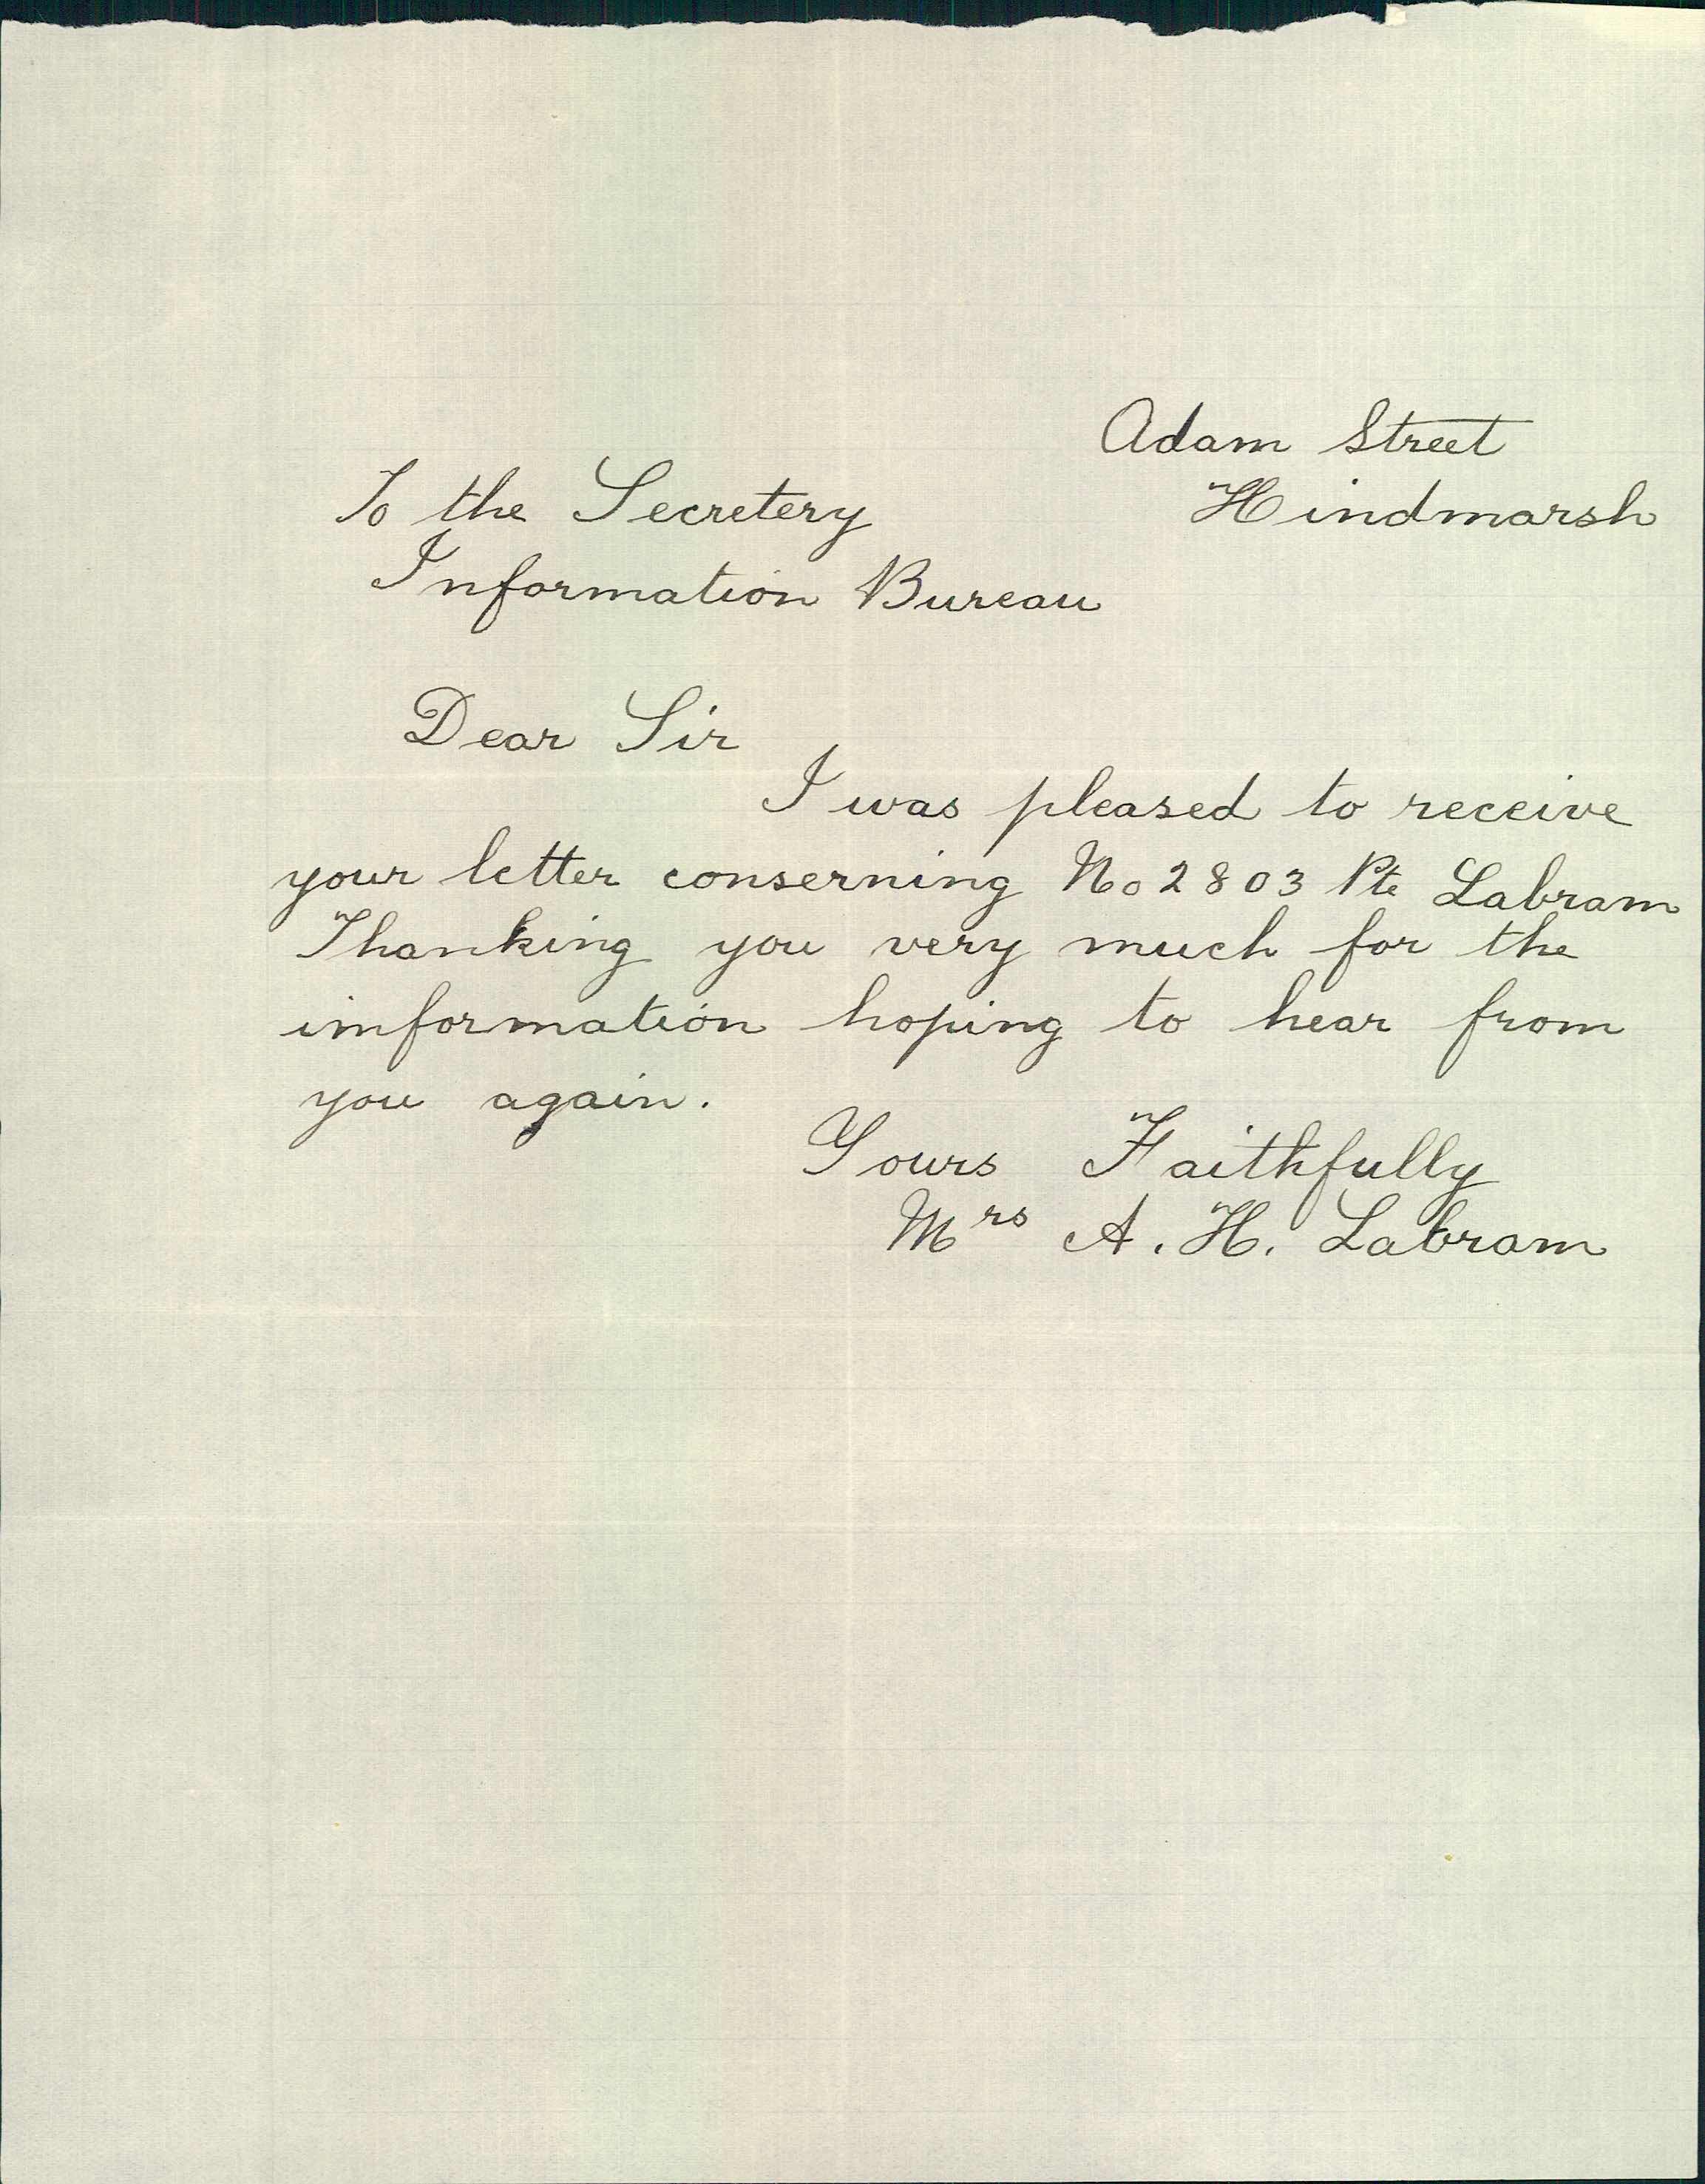 Adam Street
Hindmarsh
To the Secretery
Information Bureau
Dear Sir
I was pleased to receive
your letter conserning No 2803 Pte Labram
Thanking you very much for the
imformation hoping to hear from
you again.
Yours Faithfully
Mrs A. H. Labram